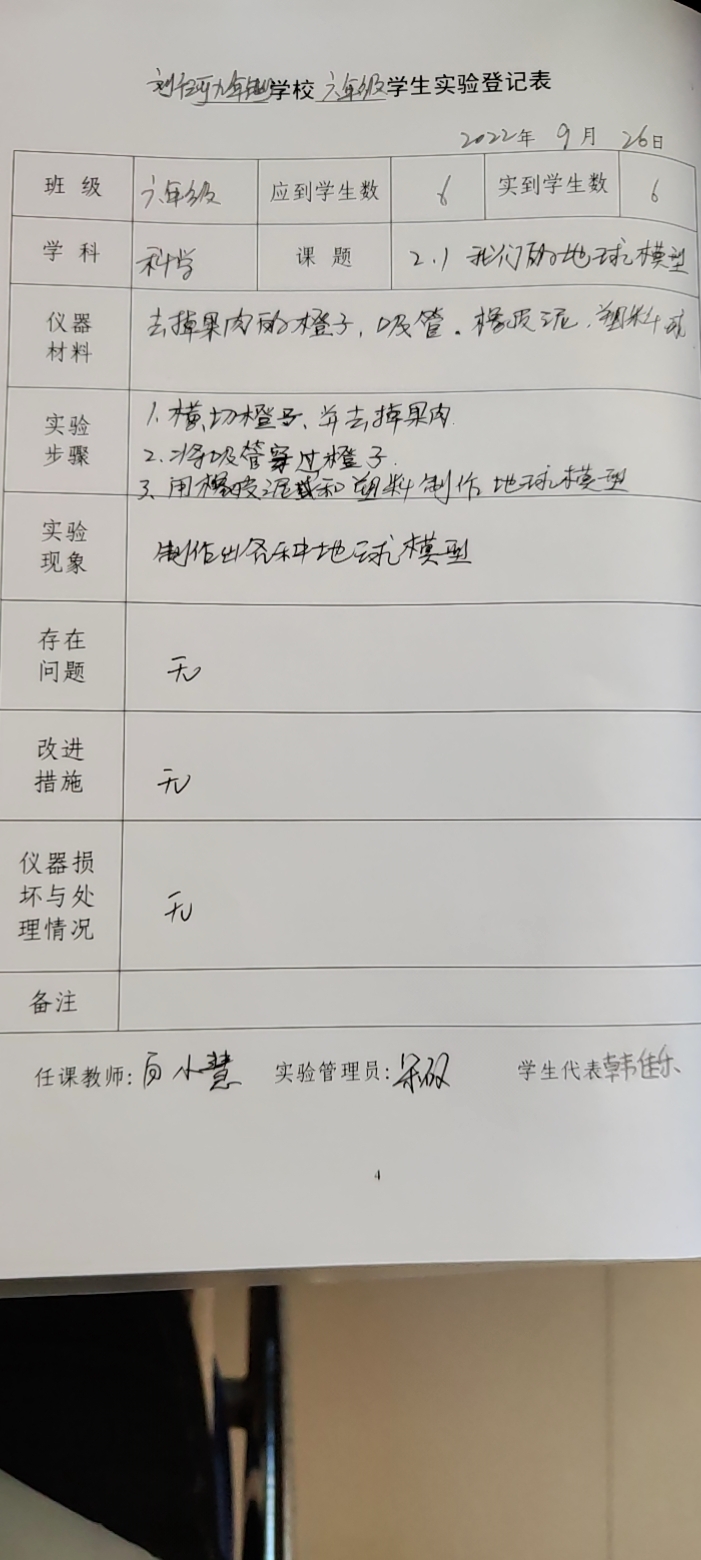 学校 六年级学生实验登记表
2022年 9月 26日
班级 六年级 应到学生数 6 实到学生数 6
学科 科学 课题 2.1 我们的地球模型
仪器材料 去掉果肉的橙子,吸管.橡皮泥.塑料球
实验步骤 1.横切橙子、并去掉果肉.
2.将吸管穿过橙子.
3.用橡皮泥和塑料制作地球模型
实验现象 制作出各种地球模型
存在问题 无
改进措施 无
仪器损坏与处理情况 无
备注
任课教师: 小慧 实验管理员: 学生代表韩佳乐
4